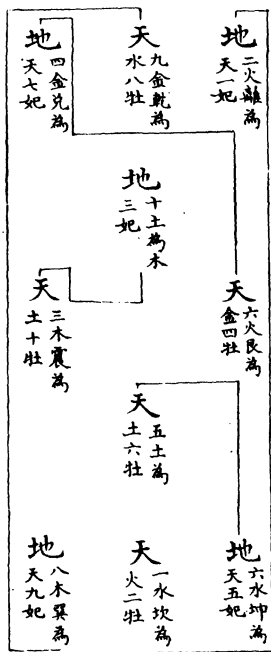 地
二火離為
天一妃
天
九金乾為
水八牡
地
四金兌為
天七妃
地
十土為木
三妃
天
六火艮為
金四牡
天
三木震為
土十牡
天
五土為
土六牡
地
六水坤為
天五妃
天
一水坎為
火二牡
地
八木巽為
天九妃